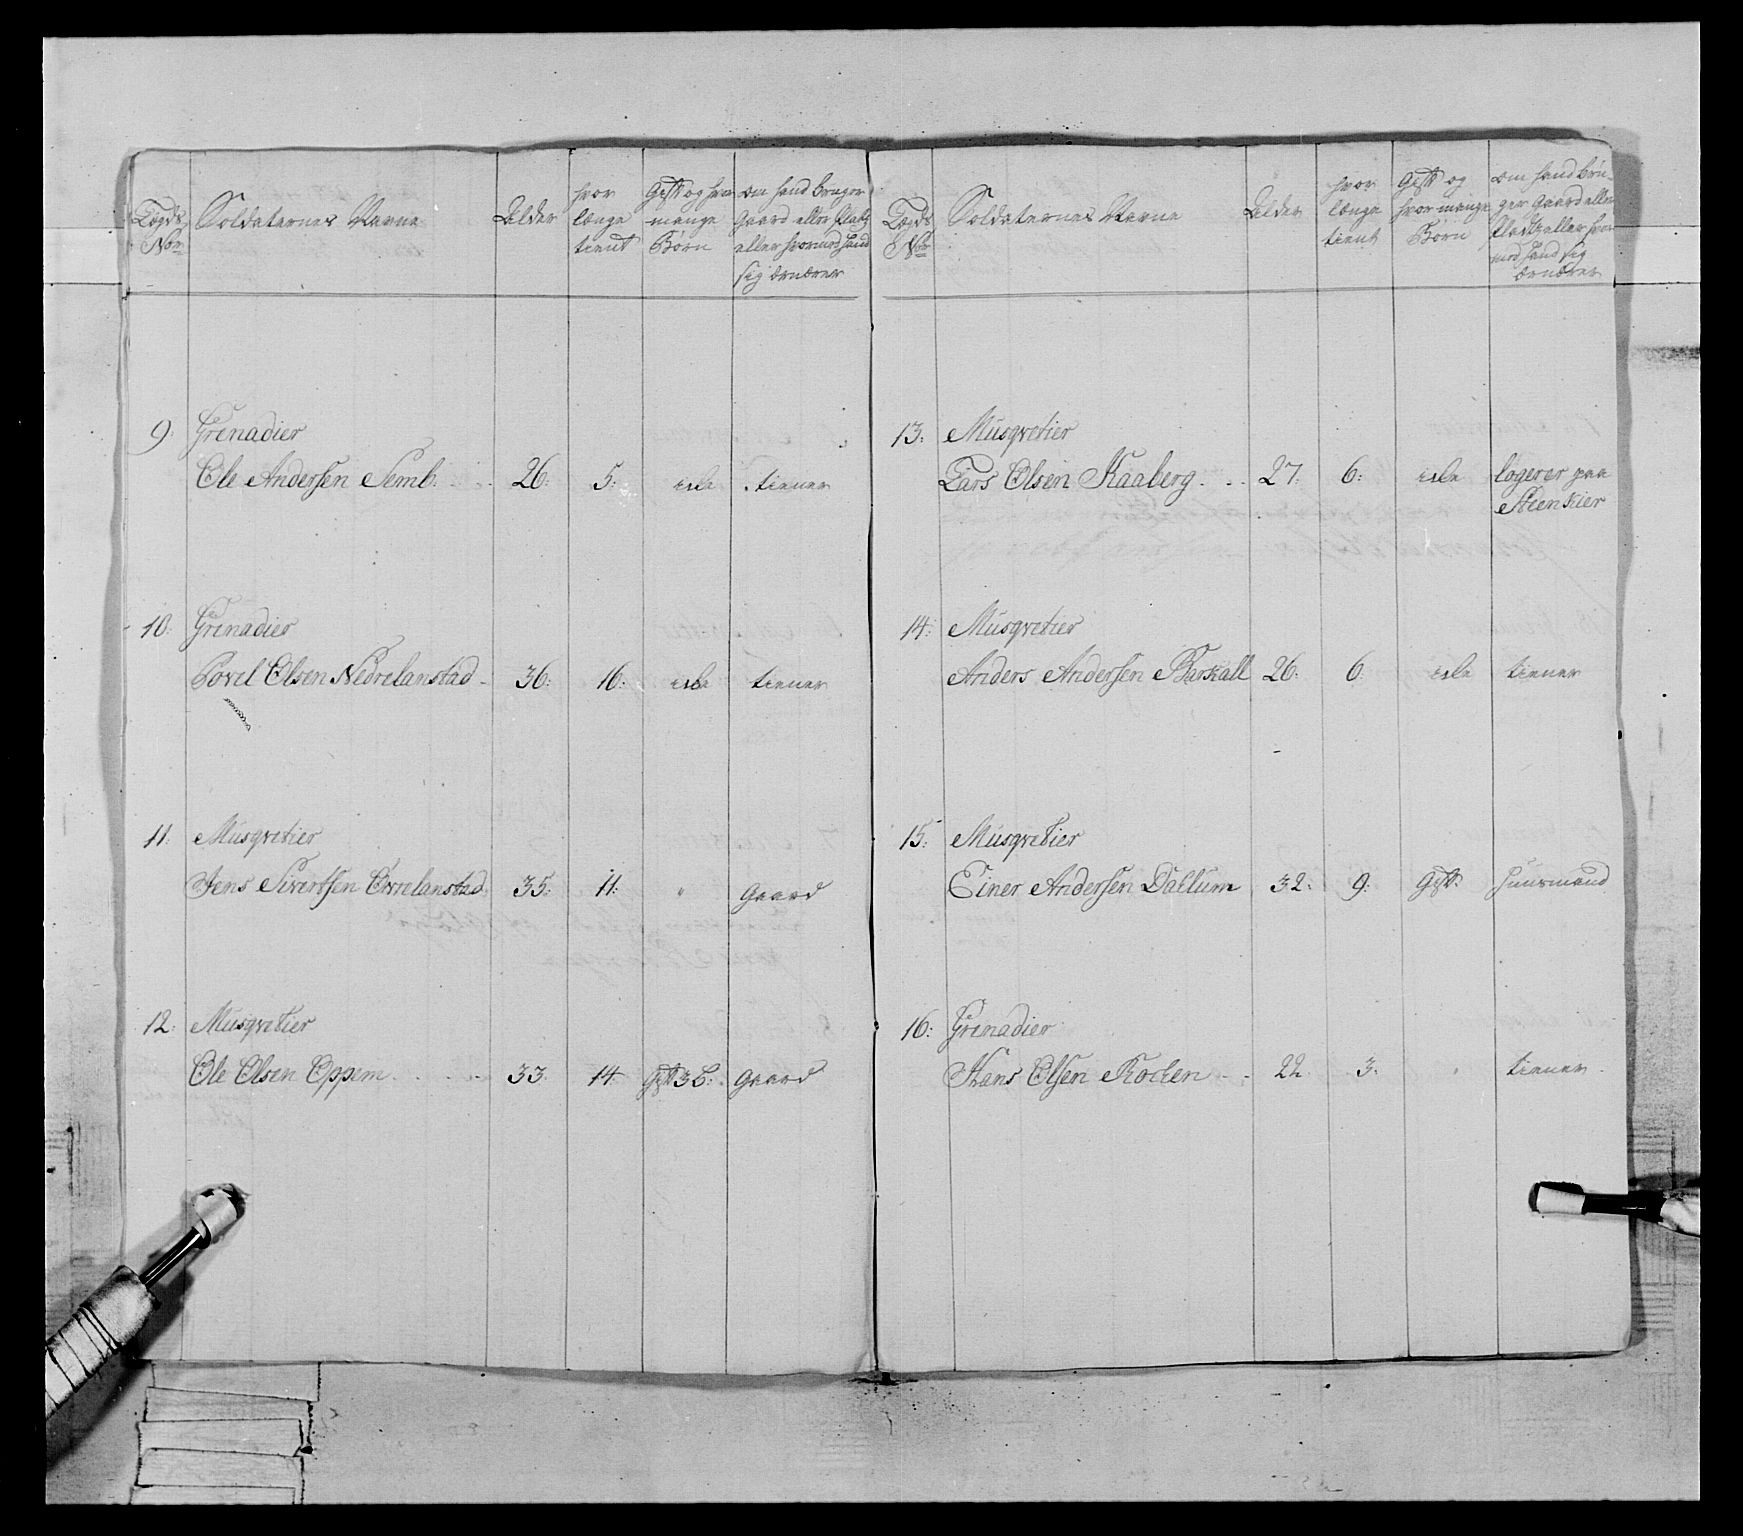 Lægds Nor
Soldaternes Navne
Alder
hvor længe tient
Gift og hvor mange Børn
om hand bruger Gaard eller Platz eller hvormed hand sig ernærer
9. Grenadier
Ole Andersen Semb. 26. 5. icke tiener
10. Grenadier
Povel Olsen Nedrelanstad 36. 16. icke tiener
11. Musqvetier
Jens Sivertsen Øvrelanstad 35. 11. " Gaard
12. Musqvetier
Ole Olsen Oppem 33. 14. Gift 3 b. Gaard
Lægds Nor
Soldaternes Navne
Alder
hvor længe tient
Gift og hvor mange Børn
om hand bruger Gaard eller Pladtz eller hvormed hand sig ernærer
13. Musqvetier
Lars Olsen Kaaberg 27. 6. icke logerer paa
Steenkier
14. Musqvetier
Anders Andersen 26. 6. icke tiener
15. Musqvetier
Einer Andersen Dallum 32. 9. Gift. Huusmand
16. Grenadier
Hans Olsen 22. 3. " tiener